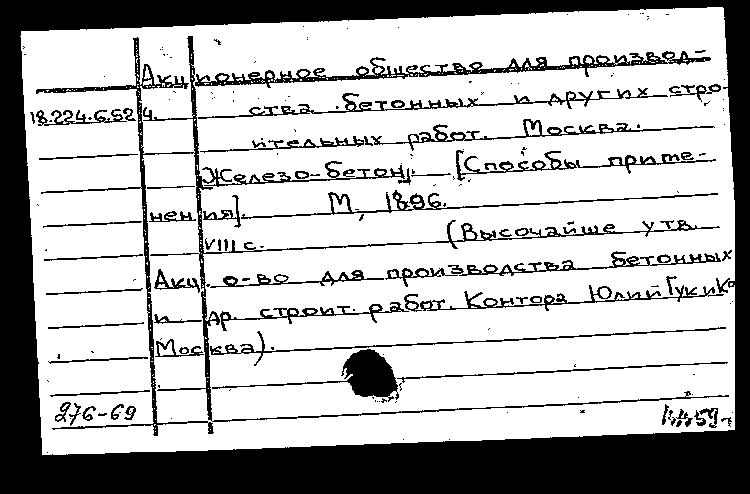 Акционерное общество для производ-
18.224.6.52 4. ства бетонных и других стро-
ительных работ. Москва.
[Железо-бетон]. [Способы приме-
нения]. М., 1896.
VIII с. (Высочайше утв.
Акц. о-во для производства бетонных
и др. строит. работ. Контора Юлий Гук и Ко
Москва).
276-69